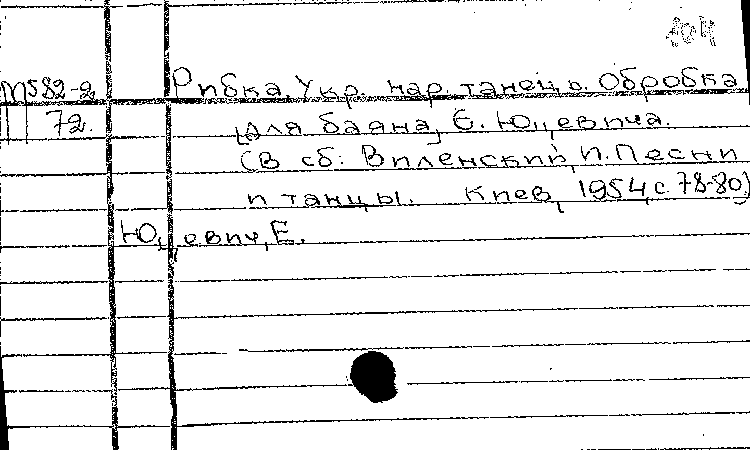 104
М582-2 Рибка. Укр. нар. танець. Обробка
72. [для баяна] Є. Юцевича.
(В сб: Виленский, И. Песни
и танцы. Киев, 1954, с. 78-80)
Юцевич, Е.